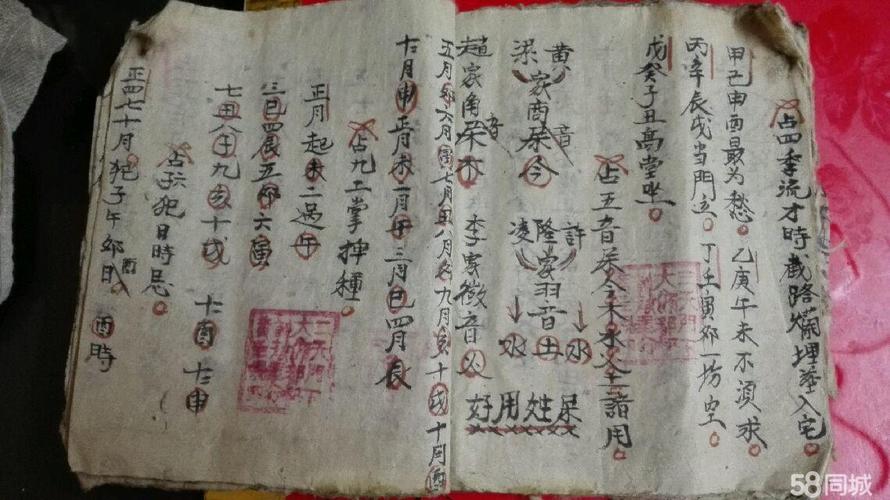 占四季流才時截路爛埋塟入宅
甲己申酉最为愁。乙庚午未不須求。
丙辛辰戌当門立。丁壬寅卯一坊空。
戊癸子丑高堂坐。
占五音屎金木水火土諸用
黄 音 許→水
家商屎金 隆家羽音土
梁 凌→水 好用姓屎
趙家角音屎木 李家徵音火
五月卯六月寅七月丑八月子九月亥十月戌十一月酉
十二月申正月未二月午三月巳四月辰
占九工掌押種。
正月起未二過午
三巳四辰五卯六寅
七丑八子九亥十戌 十一酉 十二申
占六犯日時忌。
正四七十月。犯子午卯酉日。酉時
58同城